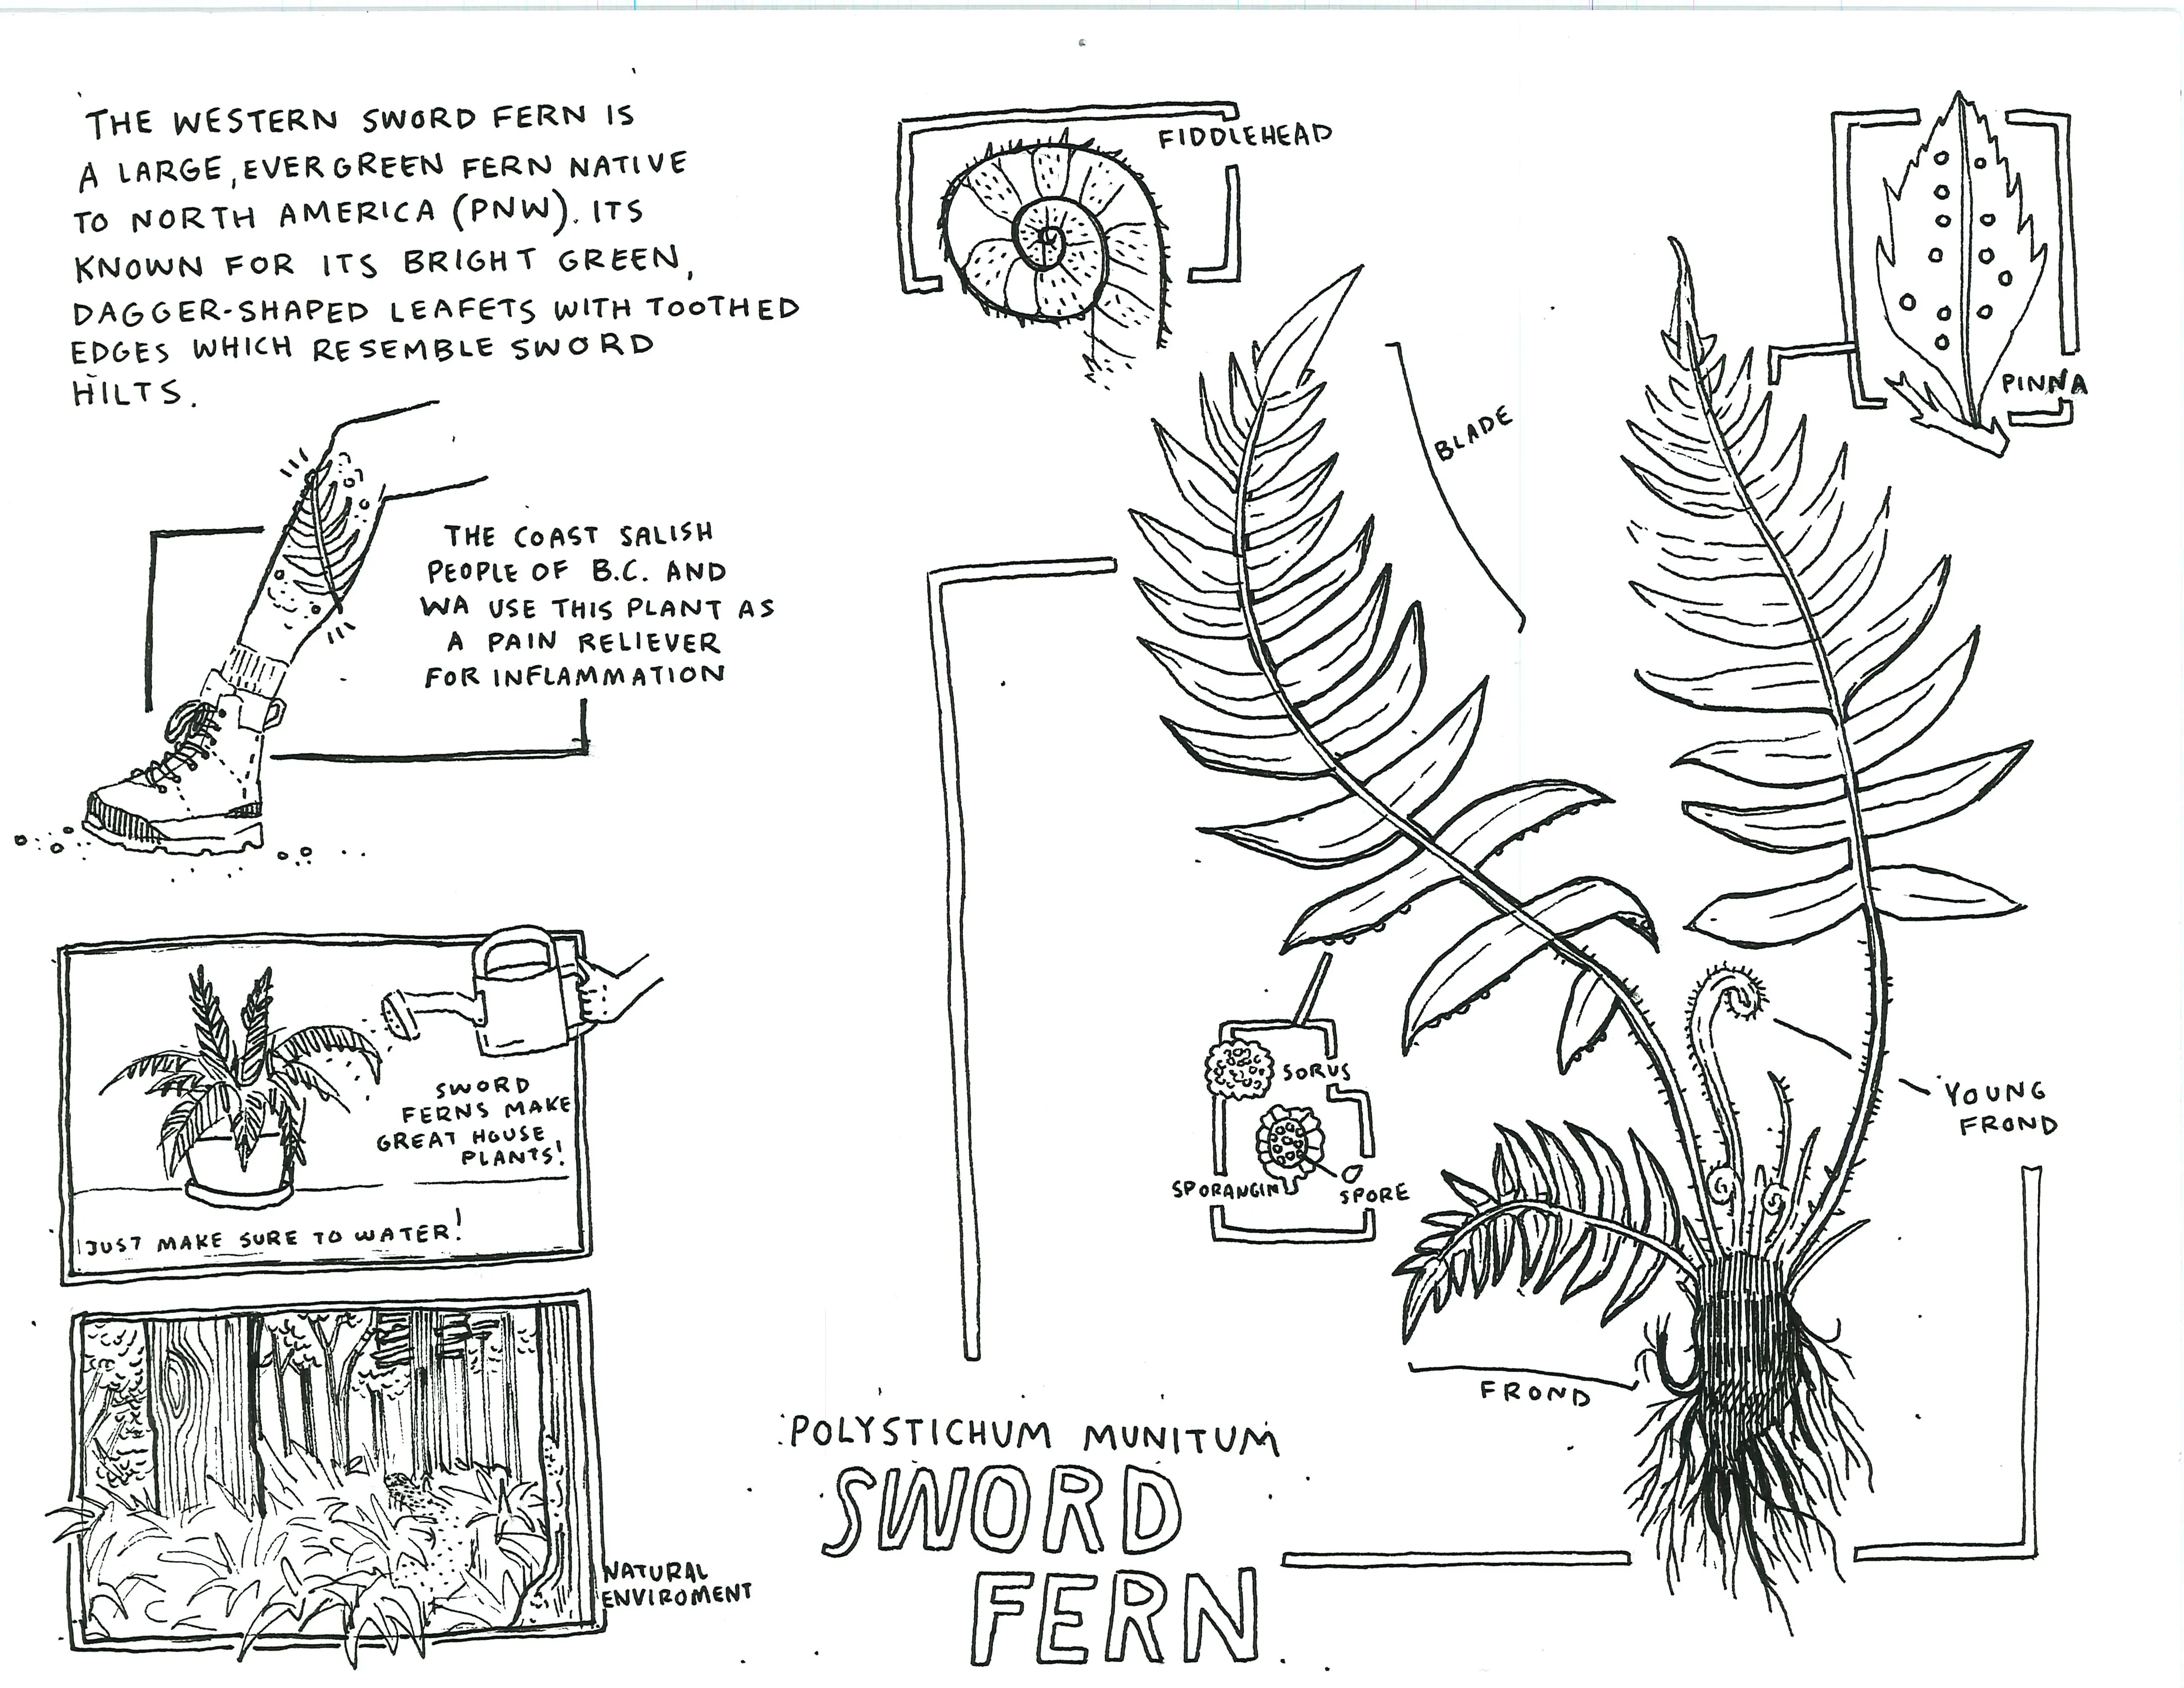 THE WESTERN SWORD FERN IS
A LARGE, EVERGREEN FERN NATIVE
TO NORTH AMERICA (PNW). ITS
KNOWN FOR ITS BRIGHT GREEN,
DAGGER-SHAPED LEAFETS WITH TOOTHED
EDGES WHICH RESEMBLE SWORD
HILTS.
THE COAST SALISH
PEOPLE OF B.C. AND
WA USE THIS PLANT AS
A PAIN RELIEVER
FOR INFLAMMATION
SWORD
FERNS MAKE
GREAT HOUSE
PLANTS!
JUST MAKE SURE TO WATER!
NATURAL
ENVIROMENT
FIDDLEHEAD
PINNA
BLADE
SORUS
SPORANGINU
SPORE
YOUNG
FROND
FROND
POLYSTICHUM MUNITUM
SWORD
FERN